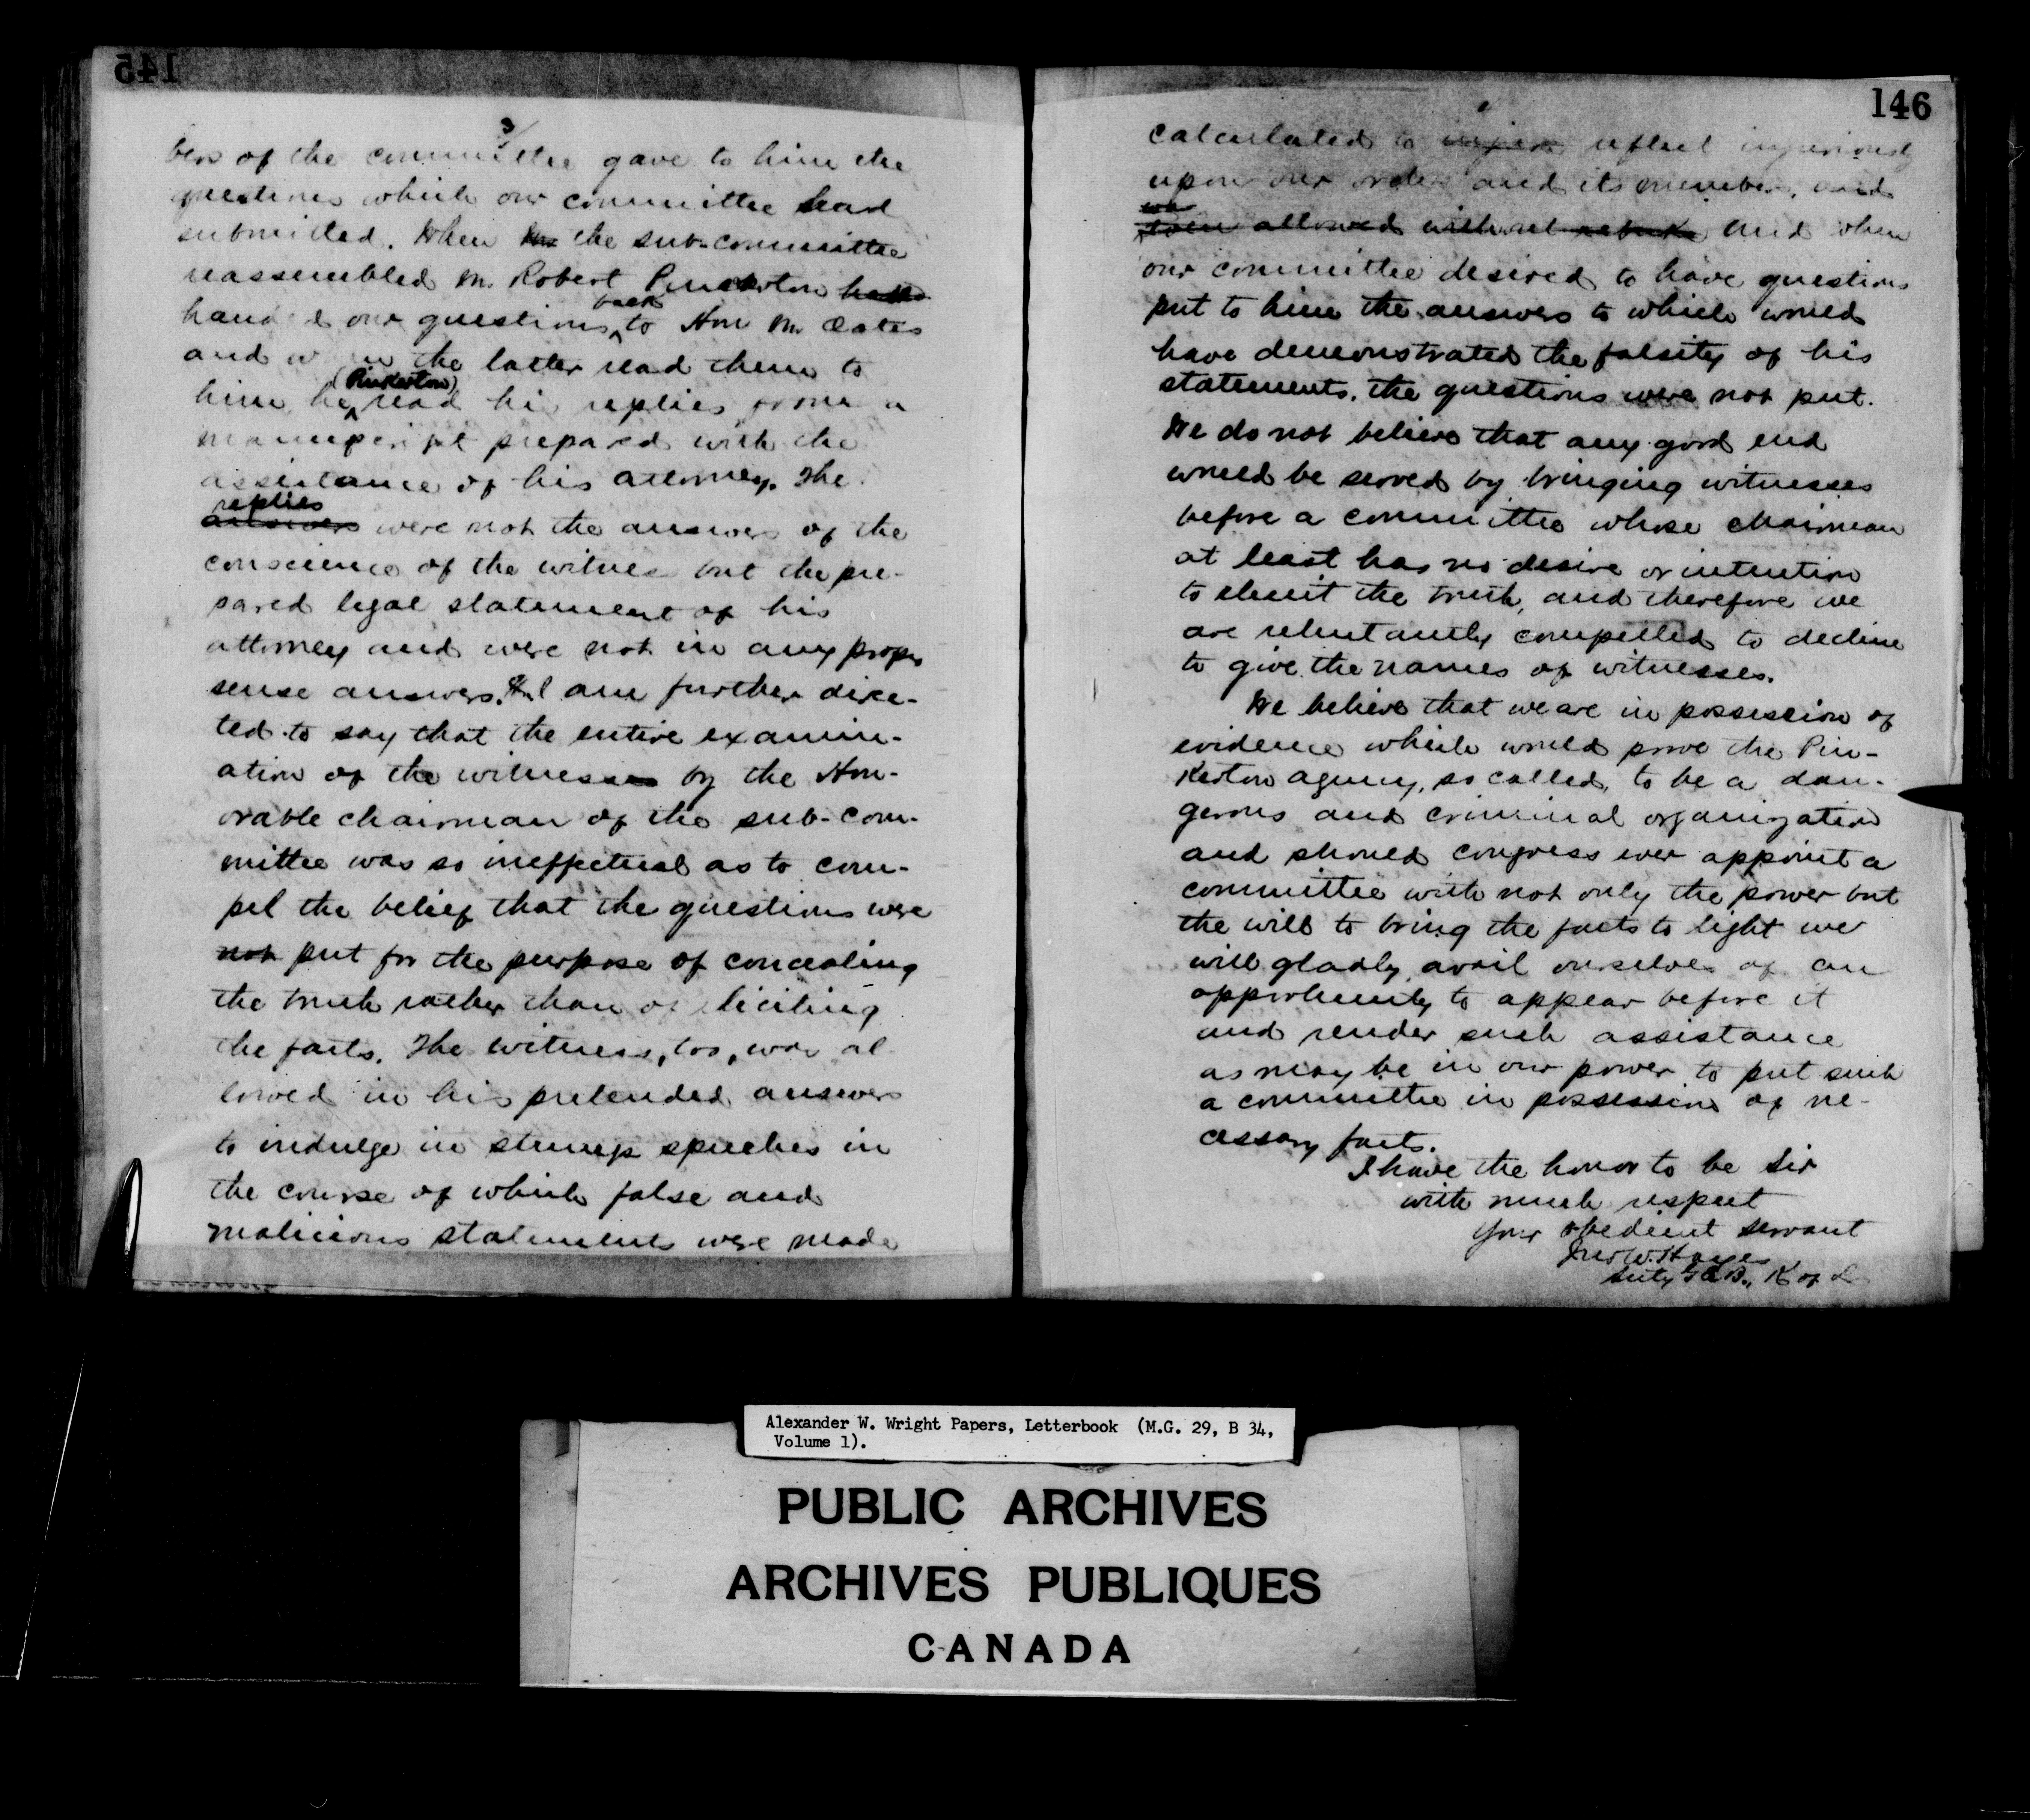 145
3/
bers of the committee gave to him the
questions which our committee had
submitted. When the the sub-committee
reassembled Mr. Robert Pinkerton
back
handed our questions to Hon Mr Oates
and when the latter read them to
(Pinkerton)
him, he read his replies from a
manuscript prepared with the
assistance of his attorney. The
replies
answers were not the answers of the
conscience of the witness but the pre-
pared legal statement of his
attorney and were not in any proper
sense answers. I am further direc-
ted to say that the entire examin-
ation of the witnesses by the Hon-
orable chairman of the sub-com-
mittee was so ineffectual as to com-
pel the belief that the questions were
not put for the purpose of concealing
the truth rather than of eliciting
the facts. The witness, too, was al
lowed in his pretended answers
to indulge in stump speeches in
the course of which false and
malicious statements were made
146
calculated to injure reflect injuriously
upon our order and its members, and
were allowed without rebuke and when
our committee desired to have questions
put to him the answers to which would
have demonstrated the falsity of his
statements, the questions were not put.
We do not believe that any good end
would be served by bringing witnesses
before a committee whose chairman
at least has no desire or intention
to elicit the truth, and therefore we
are reluctantly compelled to decline
to give the names of witnesses.
We believe that we are in possession of
evidence which would prove the Pin-
kerton agency, so called, to be a dan-
gerous and criminal organization
and should congress ever appoint a
committee with not only the power but
the will to bring the facts to light we
will gladly avail ourselves of an
opportunity to appear before it
and render such assistance
as may be in our power to put such
a committee in possession of ne-
cessary facts.
I have the honor to be Sir
with much respect
Your obedient servant
Jno W. Hayes
Secty G.E.B., K of L
Alexander W. Wright Papers, Letterbook (M.G. 29, B 34,
Volume 1).
PUBLIC ARCHIVES
ARCHIVES PUBLIQUES
CANADA